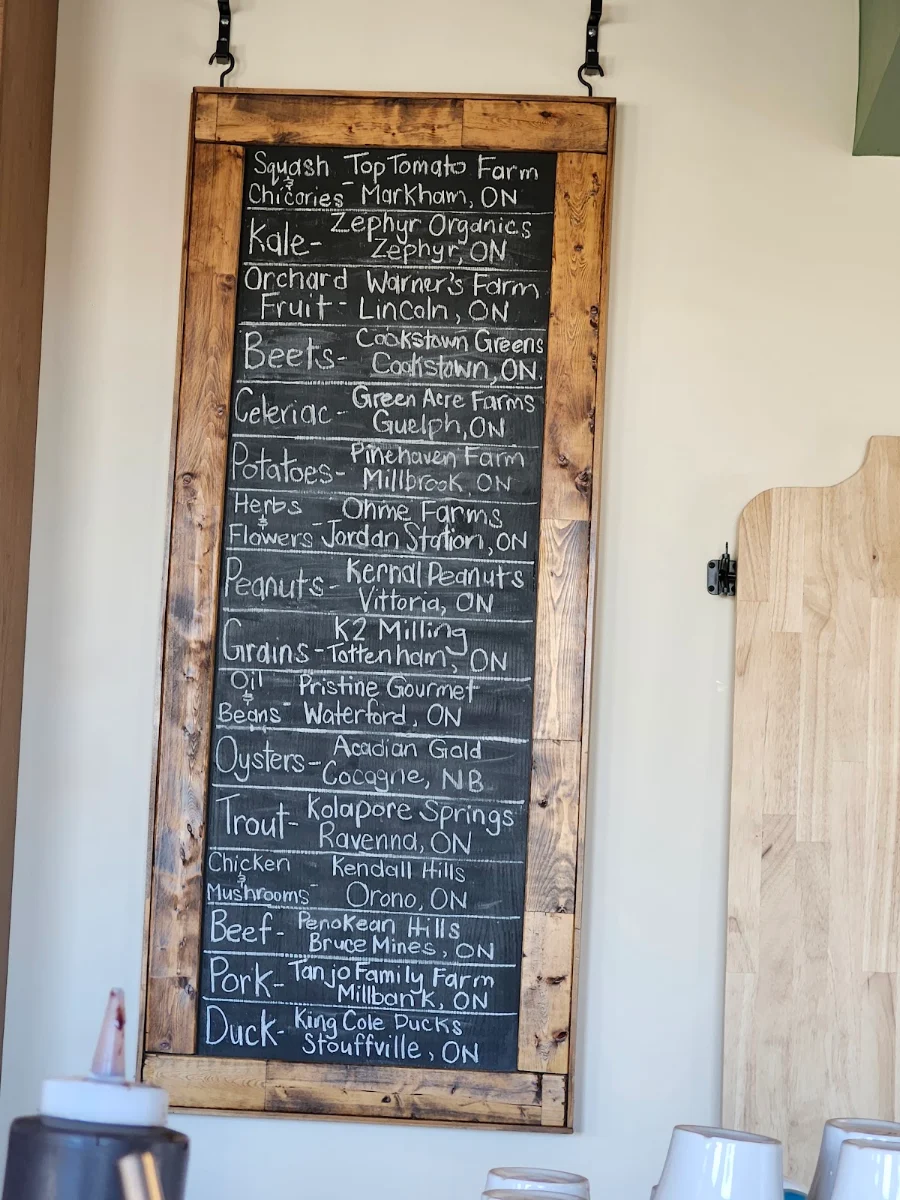 Squash TopTomato Farm
& Chicories - Markham, ON
Kale - Zephyr Organics
Zephyr, ON
Orchard Warner's Farm
Fruit - Lincoln, ON
Beets - Cookstown Greens
Cookstown, ON
Celeriac - Green Acre Farms
Guelph, ON
Potatoes - Pinehaven Farm
Millbrook, ON
Herbs - Ohme Farms
& Flowers Jordan Station, ON
Peanuts - Kernal Peanuts
Vittoria, ON
K2 Milling
Grains - Tottenham, ON
Oil Pristine Gourmet
& Beans - Waterford, ON
Oysters - Acadian Gold
Cocagne, NB
Trout - Kolapore Springs
Ravenna, ON
Chicken Kendall Hills
& Mushrooms - Orono, ON
Beef - Penokean Hills
Bruce Mines, ON
Pork - Tanjo Family Farm
Millbank, ON
Duck - King Cole Ducks
Stouffville, ON